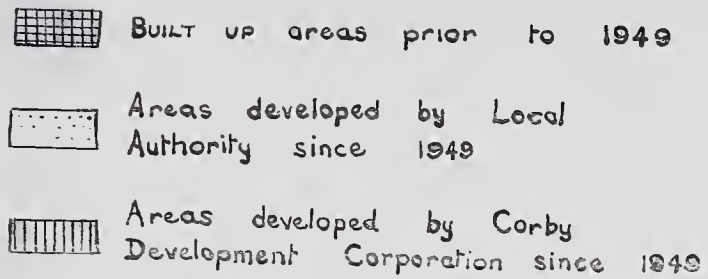 BUILT UP areas prior to 1949
Areas developed by Local
Authority since 1949
Areas developed by Corby
Development Corporation since 1949